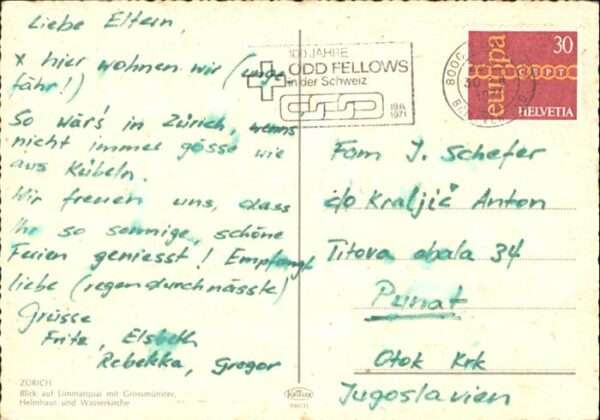 Liebe Eltern,
x hier wohnen wir (unge
fähr!)
So wär's in Zürich, wenns
nicht immer gösse wie
aus Kübeln.
Wir freuen uns, dass
Ihr so sonnige, schöne
Ferien geniesst! Empfangt
liebe (regendurchnässte)
Grüsse
Fritz, Elsbeth
Rebekka, Gregor
ZÜRICH
Blick auf Limmatquai mit Grossmünster,
Helmhaus und Wasserkirche
100 JAHRE
ODD FELLOWS
in der Schweiz
1871
1971
8000
30
europa
HELVETIA
Fam J. Schefer
c/o Kraljič Anton
Titova obala 34
Punat
Otok Krk
Jugoslavien